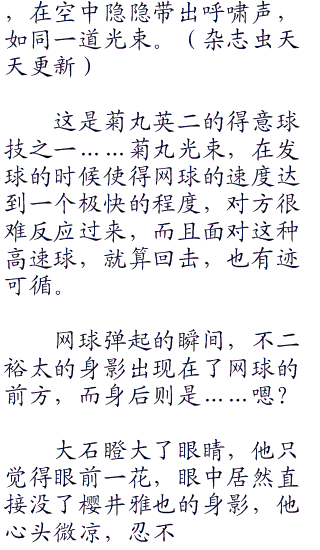 ，在空中隐隐带出呼啸声，
如同一道光束。（杂志虫天
天更新）
这是菊丸英二的得意球
技之一……菊丸光束，在发
球的时候使得网球的速度达
到一个极快的程度，对方很
难反应过来，而且面对这种
高速球，就算回击，也有迹
可循。
网球弹起的瞬间，不二
裕太的身影出现在了网球的
前方，而身后则是……嗯？
大石瞪大了眼睛，他只
觉得眼前一花，眼中居然直
接没了樱井雅也的身影，他
心头微凉，忍不